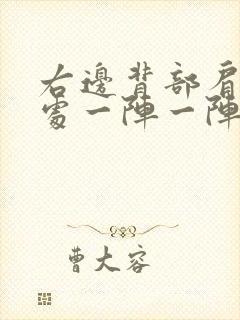 右邊背部肩
處一陣一陣
曹大容